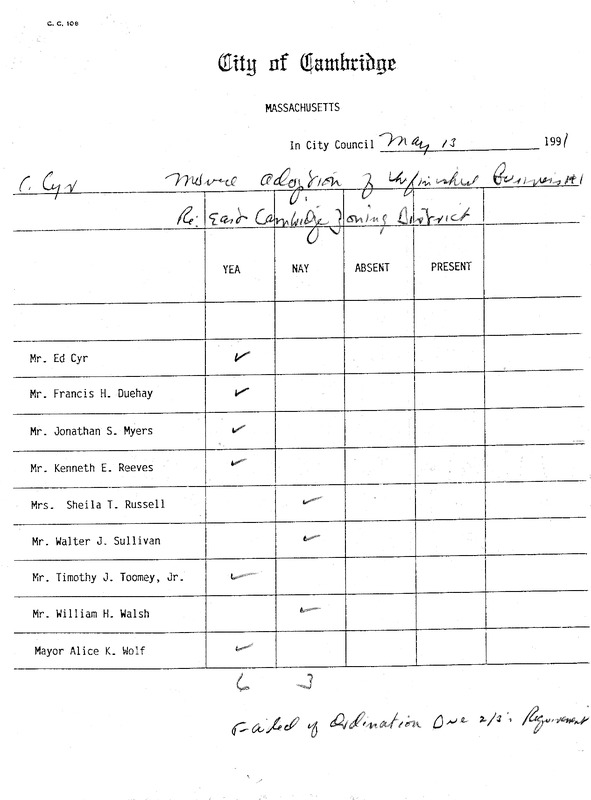 C. C. 108
City of Cambridge
MASSACHUSETTS
In City Council May 13 1991
C. Cyr Moved adoption of Unfinished Business #1
Re: East Cambridge Zoning District
YEA NAY ABSENT PRESENT
Mr. Ed Cyr ✓
Mr. Francis H. Duehay ✓
Mr. Jonathan S. Myers ✓
Mr. Kenneth E. Reeves ✓
Mrs. Sheila T. Russell ✓
Mr. Walter J. Sullivan ✓
Mr. Timothy J. Toomey, Jr. ✓
Mr. William H. Walsh ✓
Mayor Alice K. Wolf ✓
6 3
Failed of Ordination Due 2/3's Requirement